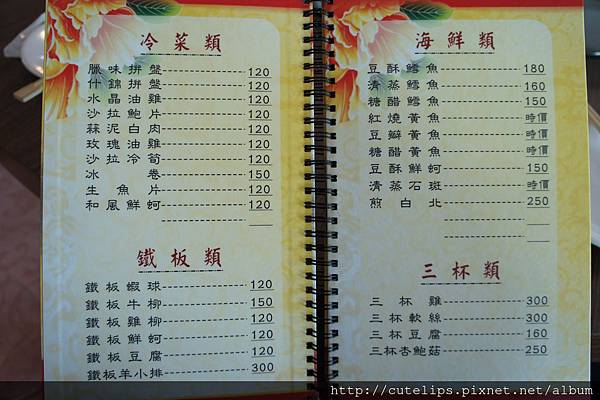 冷菜類
臘味拼盤 120
什錦拼盤 120
水晶油雞 120
沙拉鮑片 120
蒜泥白肉 120
玫瑰油雞 120
沙拉冷筍 120
冰卷 150
生魚片 120
和風鮮蚵 120
鐵板類
鐵板蝦球 120
鐵板牛柳 150
鐵板雞柳 120
鐵板鮮蚵 120
鐵板豆腐 120
鐵板羊小排 300
海鮮類
豆酥鱈魚 180
清蒸鱈魚 160
糖醋鱈魚 150
紅燒黃魚 時價
豆瓣黃魚 時價
糖醋黃魚 時價
豆酥鮮蚵 150
清蒸石斑 時價
煎白北 250
三杯類
三杯雞 300
三杯軟絲 300
三杯豆腐 160
三杯杏鮑菇 250
http://cutelips.pixnet.net/album